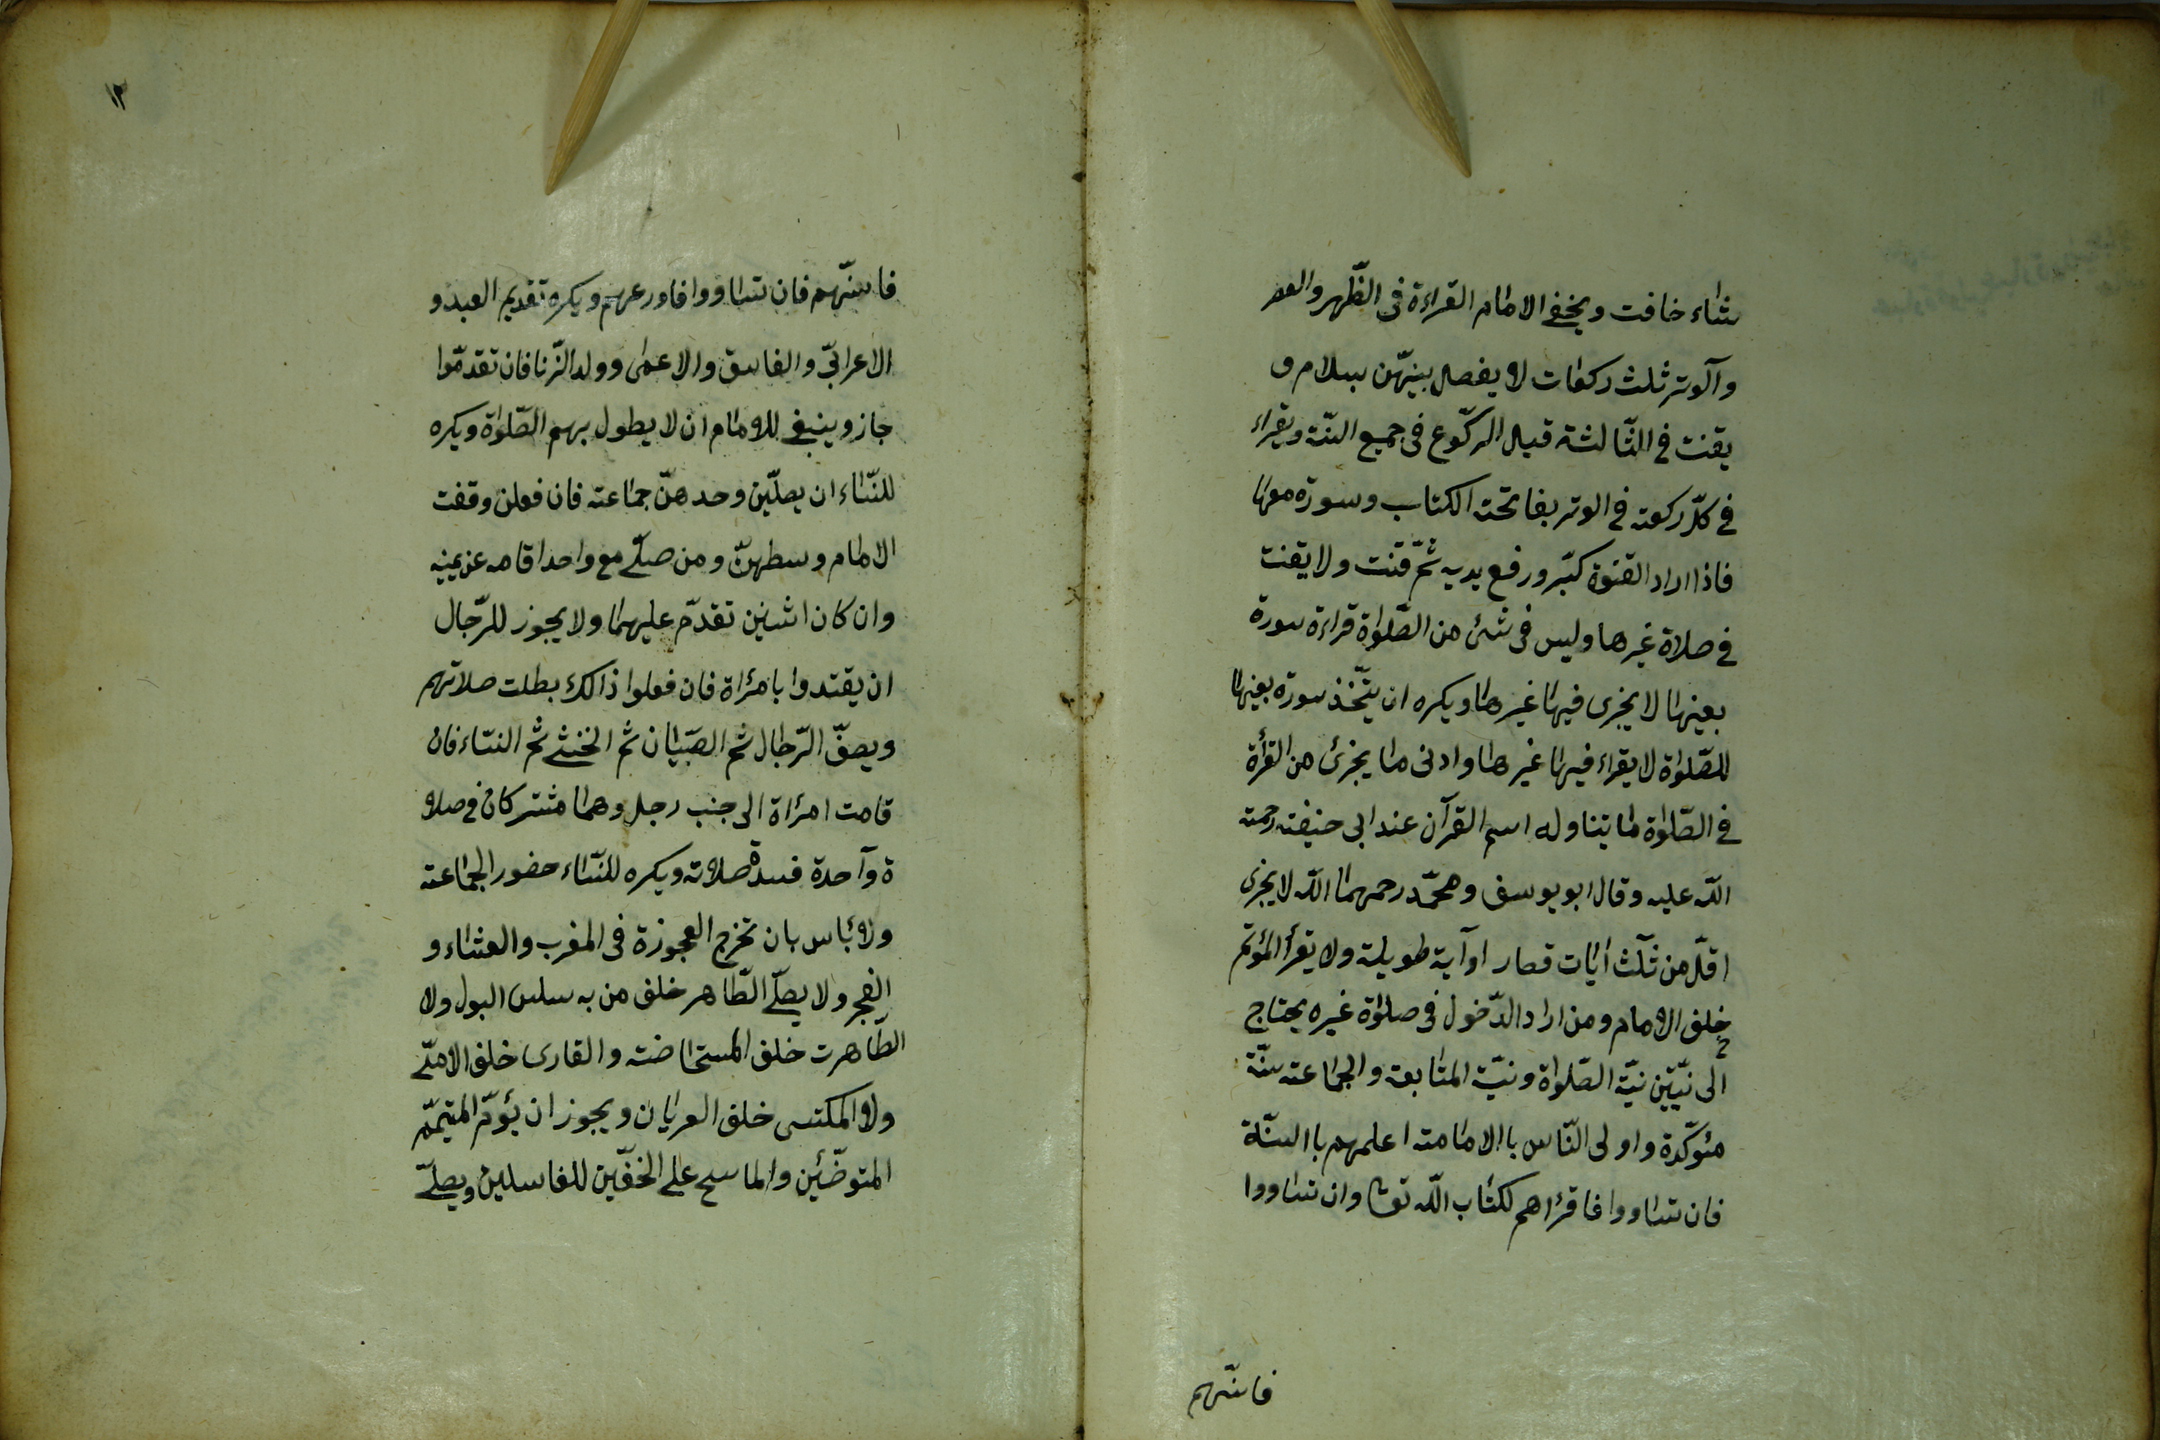 شاء خافت ويخفى الامام القراءة فى الظّهر والعصر
وآلوتر ثلث ركعات لا يفصل بينهّن بسلام و
يقنت فى الثّالثة قبل الركّوع فى جميع السّنة ويقراء
فى كلّ ركعته فى الوتر بفاتحته الكتاب وسورة معها
فاذا اراد القنوة كبّر ورفع يديه ثمّ قنت ولا يقنت
فى صلاة غيرها وليس فى شئ من الصّلواة قراءة سورة
بعينها لا يجزى فيها غيرها ويكره ان يتّخذ سورة بعينها
للصّلواة لا يقراء فيها غيرها وادنى ما يجزئ من القرأة
فى الصّلواة ما يتناوله اسم القرآن عند ابى حنيفته رحمته
اللّه عليه وقال ابو يوسف ومحمّد رحمهما اللّه لا يجزى
اقلّ من ثلث آيات قصار او آية طويلة ولا يقرأ المؤتم
خلف الامام ومن اراد الدّخول فى صلواة غيره يحتاج
الى نيّتين نيّة الصّلواة ونيّة المتابعة والجماعته سنّة
مئوكّدة واولى النّاس باالامامته اعلمهم باالسنّة
فان تساووا فاقرئهم لكتاب اللّه تعا وان تساووا
فاسنّهم
١٢
فاسنّهم فان تساووا فاورعهم ويكره تقديم العبد و
الاعرابىّ والفاسق والاعمى وولد الزّنا فان تقدمّوا
جاز وينبغى للامام ان لا يطول بهم الصّلواة ويكره
للنّساء ان يصلّين وحدهنّ جماعته فان فعلن وقفت
الامام وسطهنّ ومن صلّى مع واحد اقامه عن يمينه
وان كان اثنين تقدمّ عليهما ولا يجوز للرّجال
ان يقتدوا بامرأة فان فعلوا ذالك بطلت صلاتهم
ويصفّ الرّجال ثم الصّبيان ثم الخنثى ثم النسّاء فان
قامت امرأة الى جنب رجل وهما مشتركان فى صلا
ة وآحدة فسدة صلاته ويكره للنّساء حضور الجماعته
ولا بأس بان تخرج العجوزة فى المغرب والعشاء و
الفجر ولا يصلّى الطّاهر خلف من به سلس البول ولا
الطّاهرت خلف المستحاضته والقارى خلف الامّى
ولا المكتسى خلف العريان ويجوز ان يؤمّ المتيمّم
المتوضّئين والماسح على الخفّين للغاسلين ويصلّى